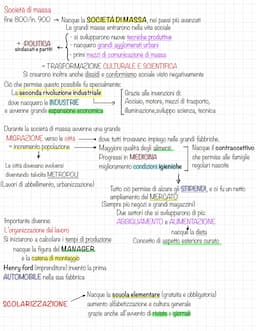 Società di massa
fine 800/in. 900 → Nacque la SOCIETÀ DI MASSA, nei paesi più avanzati
Le grandi masse entrarono nella vita sociale
+ POLITICA
sindacati e partiti
- si svilupparono nuove tecniche produttive
- nacquero grandi agglomerati urbani
- primi mezzi di comunicazione di massa
→ TRASFORMAZIONE CULTURALE E SCIENTIFICA
Si crearono inoltre anche disagi e conformismo sociale visto negativamente
Ciò che permise questo possibile fu specialmente:
La seconda rivoluzione industriale
dove nacquero le INDUSTRIE
e avvenne grande espansione economica
Grazie alle invenzioni di:
Acciaio, motore, mezzi di trasporto,
illuminazione, sviluppo scienza, tecnica
Durante la società di massa avvenne una grande
MIGRAZIONE verso le città → dove tutti trovavano impiego nelle grandi fabbriche.
= incremento popolazione
Maggiore qualità degli alimenti
Progressi in MEDICINA
miglioramento condizioni igieniche
→ Nacque il contraccettivo
che permise alle famiglie
regolari nascite
Le città divennero evolversi
divenendo talvolta METROPOLI
(Lavori di abbellimento, urbanizzazione)
Tutto ciò permise di alzare gli STIPENDI, e si fu un netto
ampliamento del MERCATO
(Sempre più negozi e grandi magazzini)
Due settori che si svilupparono di più:
ABBIGLIAMENTO e ALIMENTAZIONE
nacque la dieta
Concetto di aspetto esteriore curato
Importante divenne:
L'organizzazione del lavoro
Si iniziarono a calcolare i tempi di produzione
nacque la figura del MANAGER
e la catena di montaggio
Henry ford (imprenditore) inventò la prima
AUTOMOBILE nella sua fabbrica
SCOLARIZZAZIONE
Nacque la scuola elementare (gratuita e obbligatoria)
aumento alfabetizzazione e cultura generale
grazie anche all'avvento di riviste e giornali